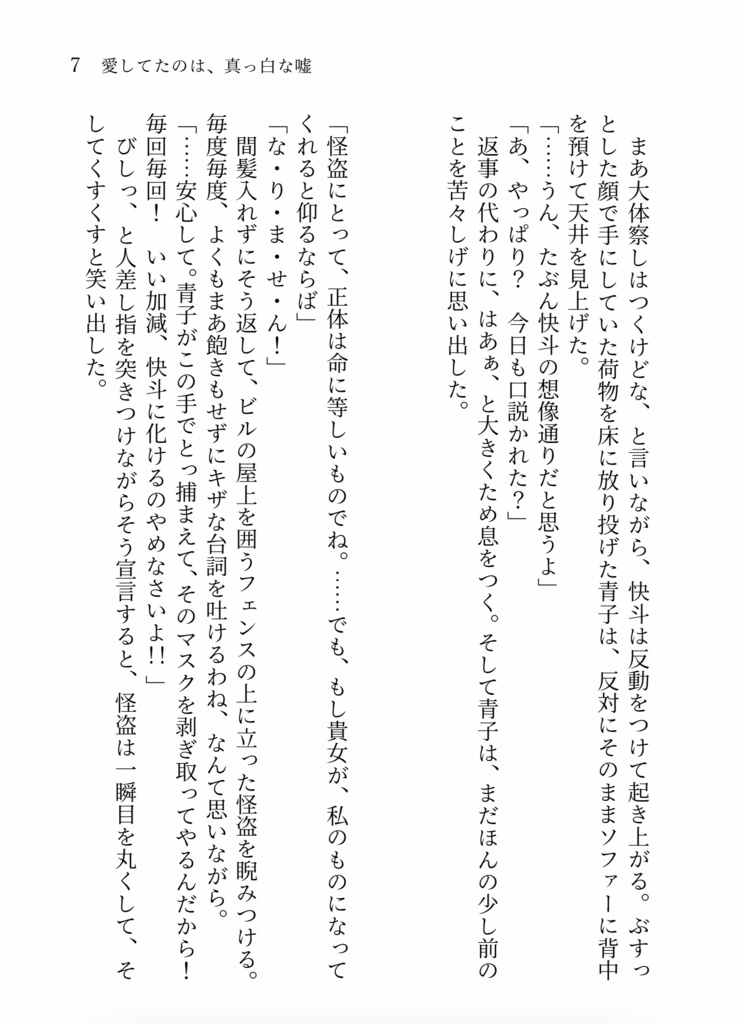 7 愛してたのは、真っ白な嘘
まあ大体察しはつくけどな、と言いながら、快斗は反動をつけて起き上がる。ぶすっ
とした顔で手にしていた荷物を床に放り投げた青子は、反対にそのままソファーに背中
を預けて天井を見上げた。
「……うん、たぶん快斗の想像通りだと思うよ」
「あ、やっぱり？　今日も口説かれた？」
返事の代わりに、はあぁ、と大きくため息をつく。そして青子は、まだほんの少し前の
ことを苦々しげに思い出した。
「怪盗にとって、正体は命に等しいものでね。……でも、もし貴女が、私のものになって
くれると仰るならば」
「な・り・ま・せ・ん！」
間髪入れずにそう返して、ビルの屋上を囲うフェンスの上に立った怪盗を睨みつける。
毎度毎度、よくもまあ飽きもせずにキザな台詞を吐けるわね、なんて思いながら。
「……安心して。青子がこの手でとっ捕まえて、そのマスクを剥ぎ取ってやるんだから！
毎回毎回！　いい加減、快斗に化けるのやめなさいよ!!」
びしっ、と人差し指を突きつけながらそう宣言すると、怪盗は一瞬目を丸くして、そ
してくすくすと笑い出した。